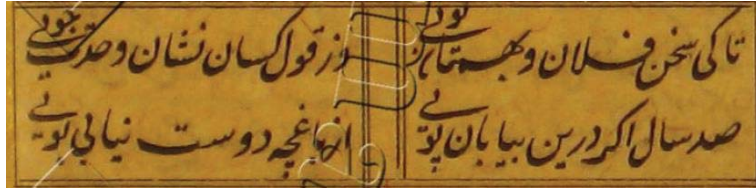 تا کی سخن فلان و بهمان گویی وز قول کسان نشان وحدت جویی
صد سال اگر درین بیابان پویی از باغچه دوست نیابی بویی